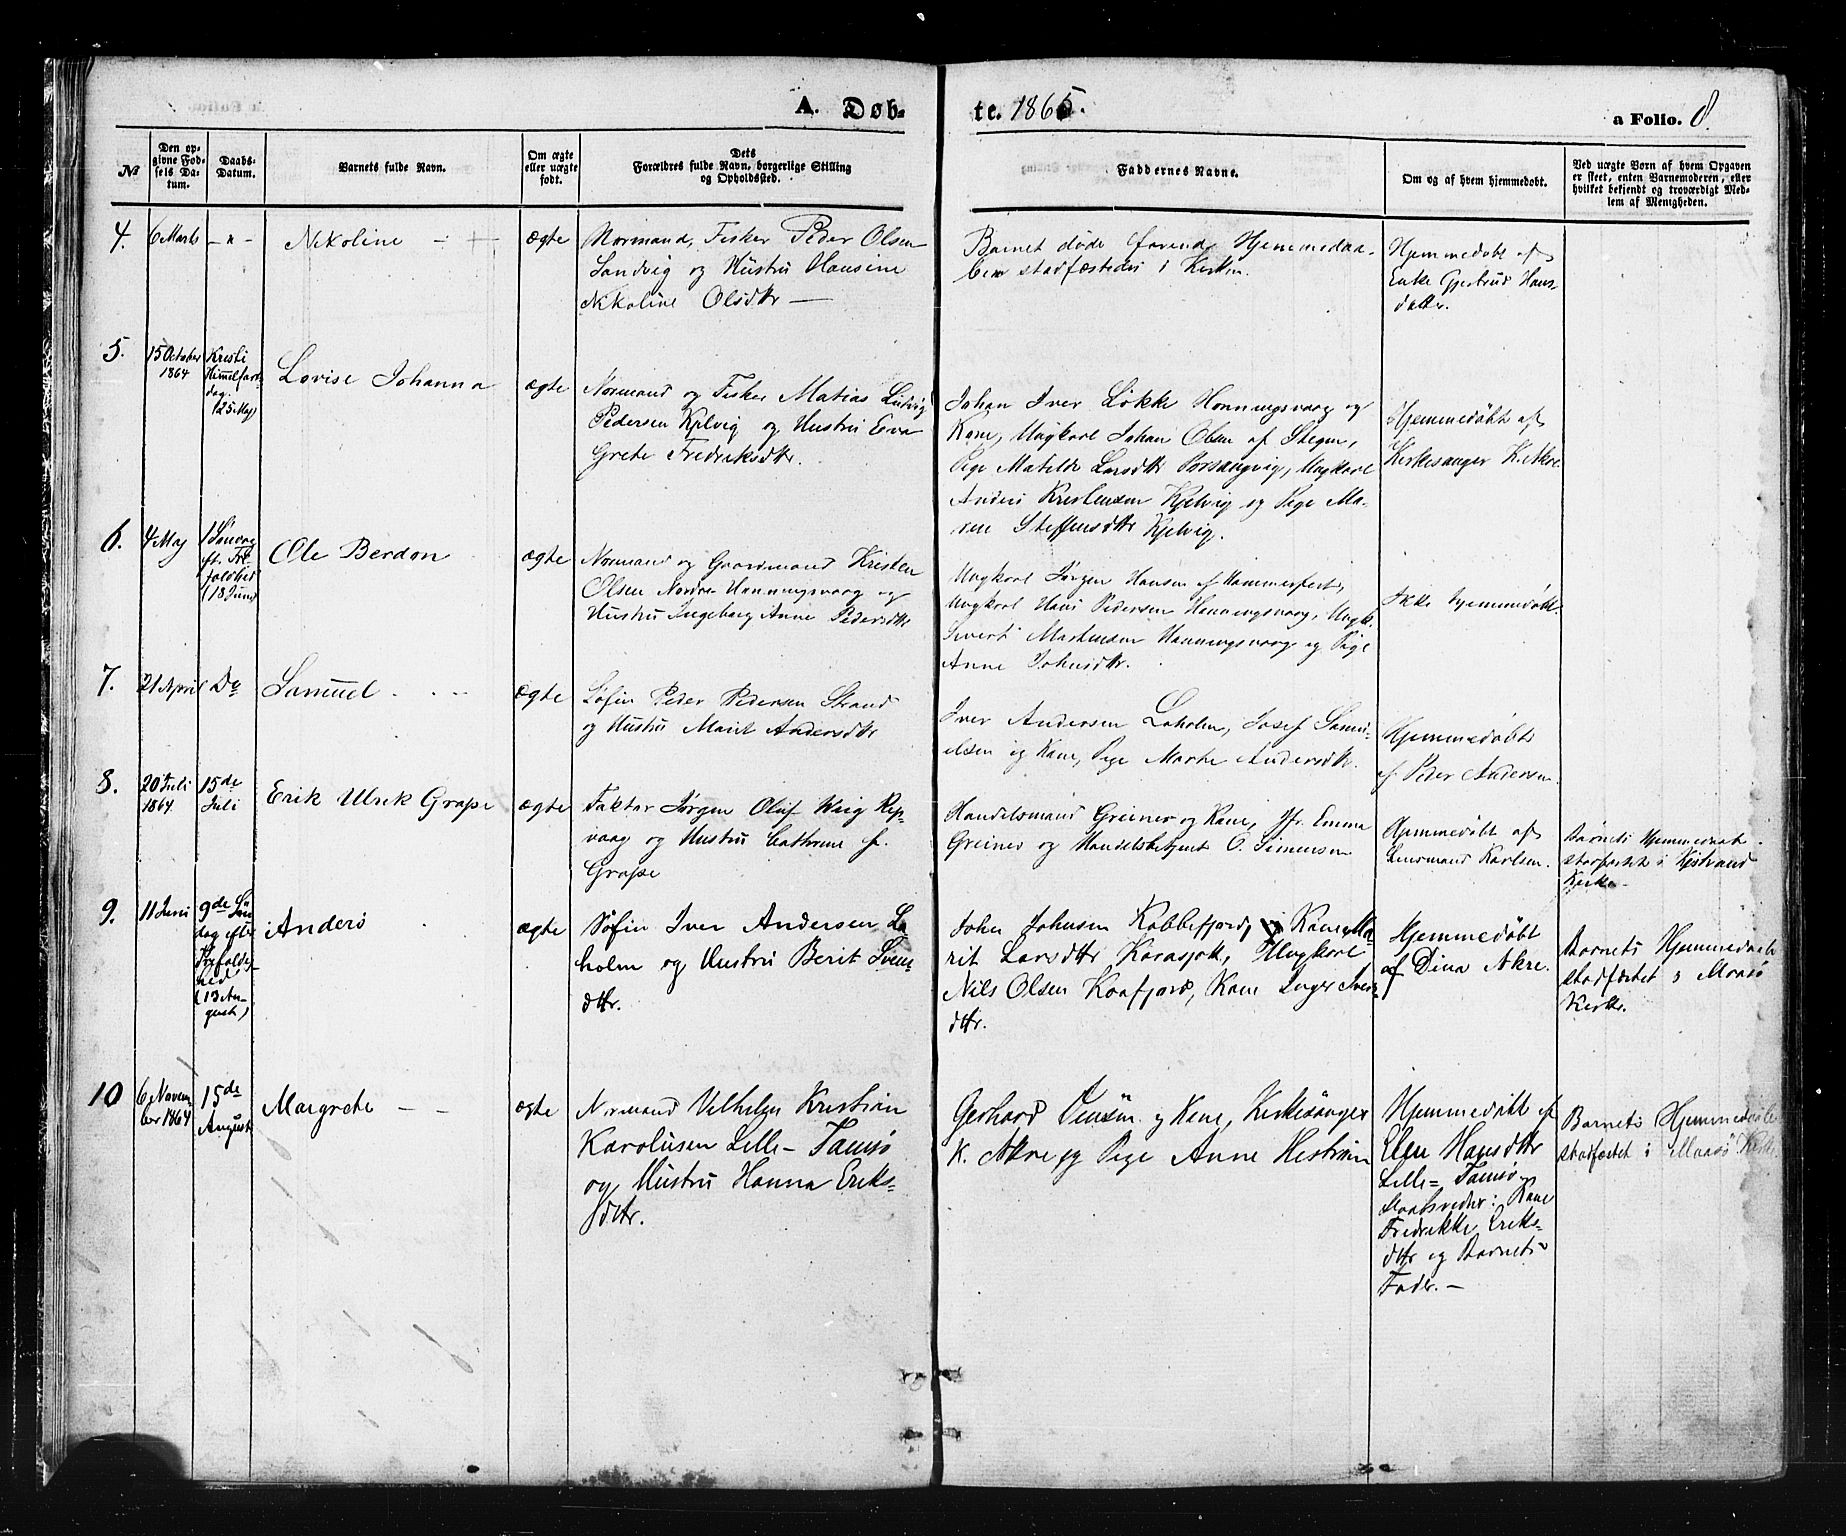 A. Døb-
te. 1865.
a Folio. 8.
№
Den op-
givne Fød-
sels Da-
tum.
Daabs-
Datum.
Barnets fulde Navn.
Om ægte
eller uægte
født.
Dets
Forældres fulde Navn, borgerlige Stilling
og Opholdssted.
Faddernes Navne.
Om og af hvem hjemmedøbt.
Ved uægte Børn af hvem Opgaven
er skeet, enten Barnemoderen, eller
hvilket bekjendt og troværdigt Med-
lem af Menigheden.
4.
6 Marts
Nikoline
ægte
Normand, Fisker Peder Olsen
Sandvig og Hustru Hansine
Nikoline Olsdtr
Barnet døde førend Hjemmedaa-
ben stadfæstedes i Kirken.
Hjemmedøbt af
Enke Gjertrud Hans-
datter.
5.
15 October
1864
Kristi
Himmelfarts
dag.
(25 Maj)
Lovise Johanna
ægte
Normand og Fisker Matias Ludvig
Pedersen Kjelvig og Hustru Eva
Grete Fredriksdtr.
Johan Iver Løkke Honningsvaag og
Kone, Ungkarl Johan Olsen af Stegen,
Pige Matilde Larsdtr Porsangvig, Ungkarl
Anders Kristensen Kjelvig og Pige Ma-
ren Steffensdtr Kjelvig.
Hjemmedøbt af
Kirkesanger K. Akre.
6.
4 Maj
1 Søndag
ft. Tre-
foldhed
(18 Juni)
Ole Berdon
ægte
Normand og Gaardmand Kristen
Olsen Nordre Honningsvaag og
Hustru Ingeborg Anne Pedersdtr
Ungkarl Jørgen Hansen af Hammerfest,
Ungkarl Hans Pedersen Honningsvaag, Ungk.
Sivert Mortensen Honningsvaag og Pige
Anne Johnsdtr.
Ikke hjemmedøbt.
7.
21 April
Do
Samuel
ægte
Søfin Peder Pedersen Strand
og Hustru Marit Andersdtr
Iver Andersen Laholm, Josef Samu-
elsen og Kone, Pige Marthe Andersdtr.
Hjemmedøbt
af Peder Andersen
8.
20 Juli
1864
15de
Juli
Erik Ulrik Grape
ægte
Faktor Jørgen Oluf Wiig Rep-
vaag og Hustru Cathrine f.
Grape
Handelsmand Greiner og Kone, Jfr. Emma
Greiner og Handelsbetjent O. Simensen
Hjemmedøbt af
Lensmand Karlsen.
Barnets Hjemmedaab
stadfæstet i Kistrand
Kirke
9.
11 Juni
9de Søn
dag efter
Trefoldig-
hed
(13 Au-
gust)
Anders
ægte
Søfin Iver Andersen La-
holm og Hustru Berit Svens-
dtr.
John Johnsen Kobbefjord, Kone Ma-
rit Larsdtr Karasjok, Ungkarl
Nils Olsen Kaafjord, Kone Inger Ivers
dtr.
Hjemmedøbt
af Dina Akre.
Barnets Hjemmedaab
stadfæstet i Maasø
Kirke.
10
6 Novem-
ber 1864
15de
August
Margrete
ægte
Normand Vilhelm Kristian
Karolusen Lille-Tamsø
og Hustru Hanna Eriks-
dtr.
Gerhard Jensen og Kone, Kirkesanger
K. Akre og Pige Anne
Hjemmedøbt af
Elen Hansdtr
Lille-Tamsø.
Daabsvidner: Kone
Fredrikke Eriks-
dtr og Barnets
Fader.
Barnets Hjemmedaab
stadfæstet i Maasø Kirke.